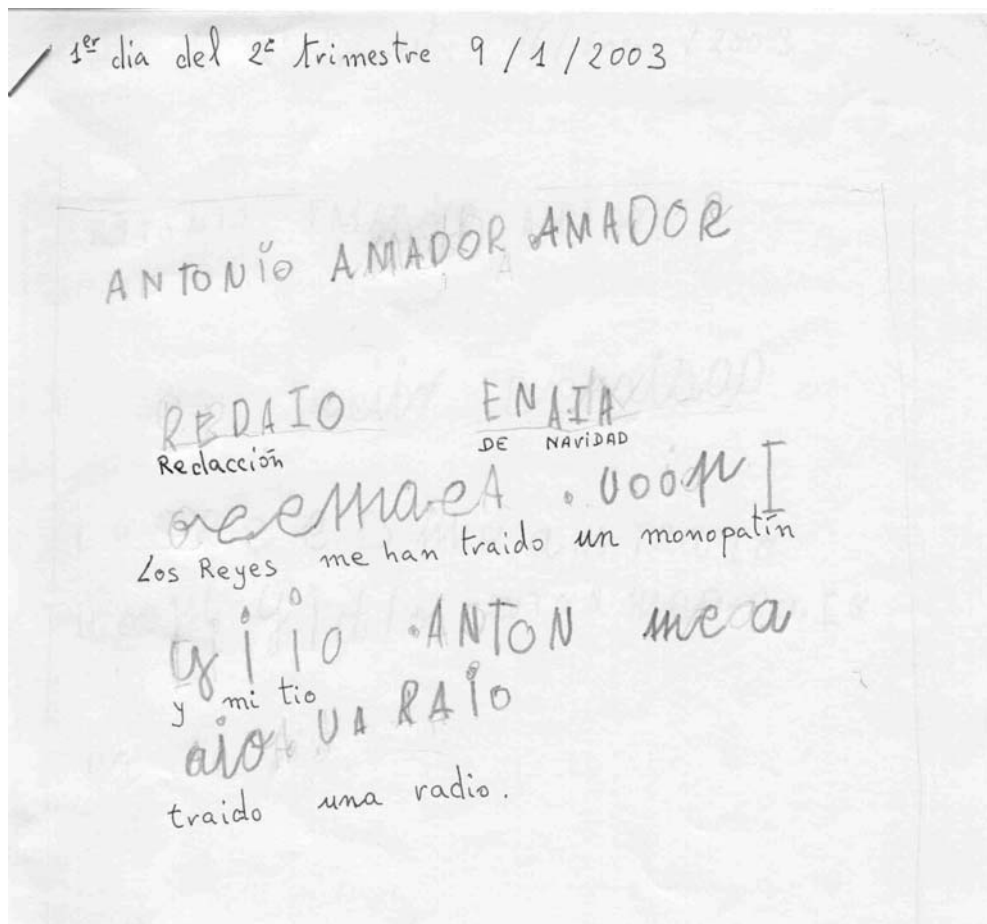 1er dia del 2º trimestre 9/1/2003
ANTONIO AMADOR AMADOR
REDAIO ENAIA
Redacción DE NAVIDAD
oeemaeA .
Los Reyes me han traido un monopatín
y i io .ANTON me a
y mi tio
aio UA RAIO
traido una radio.